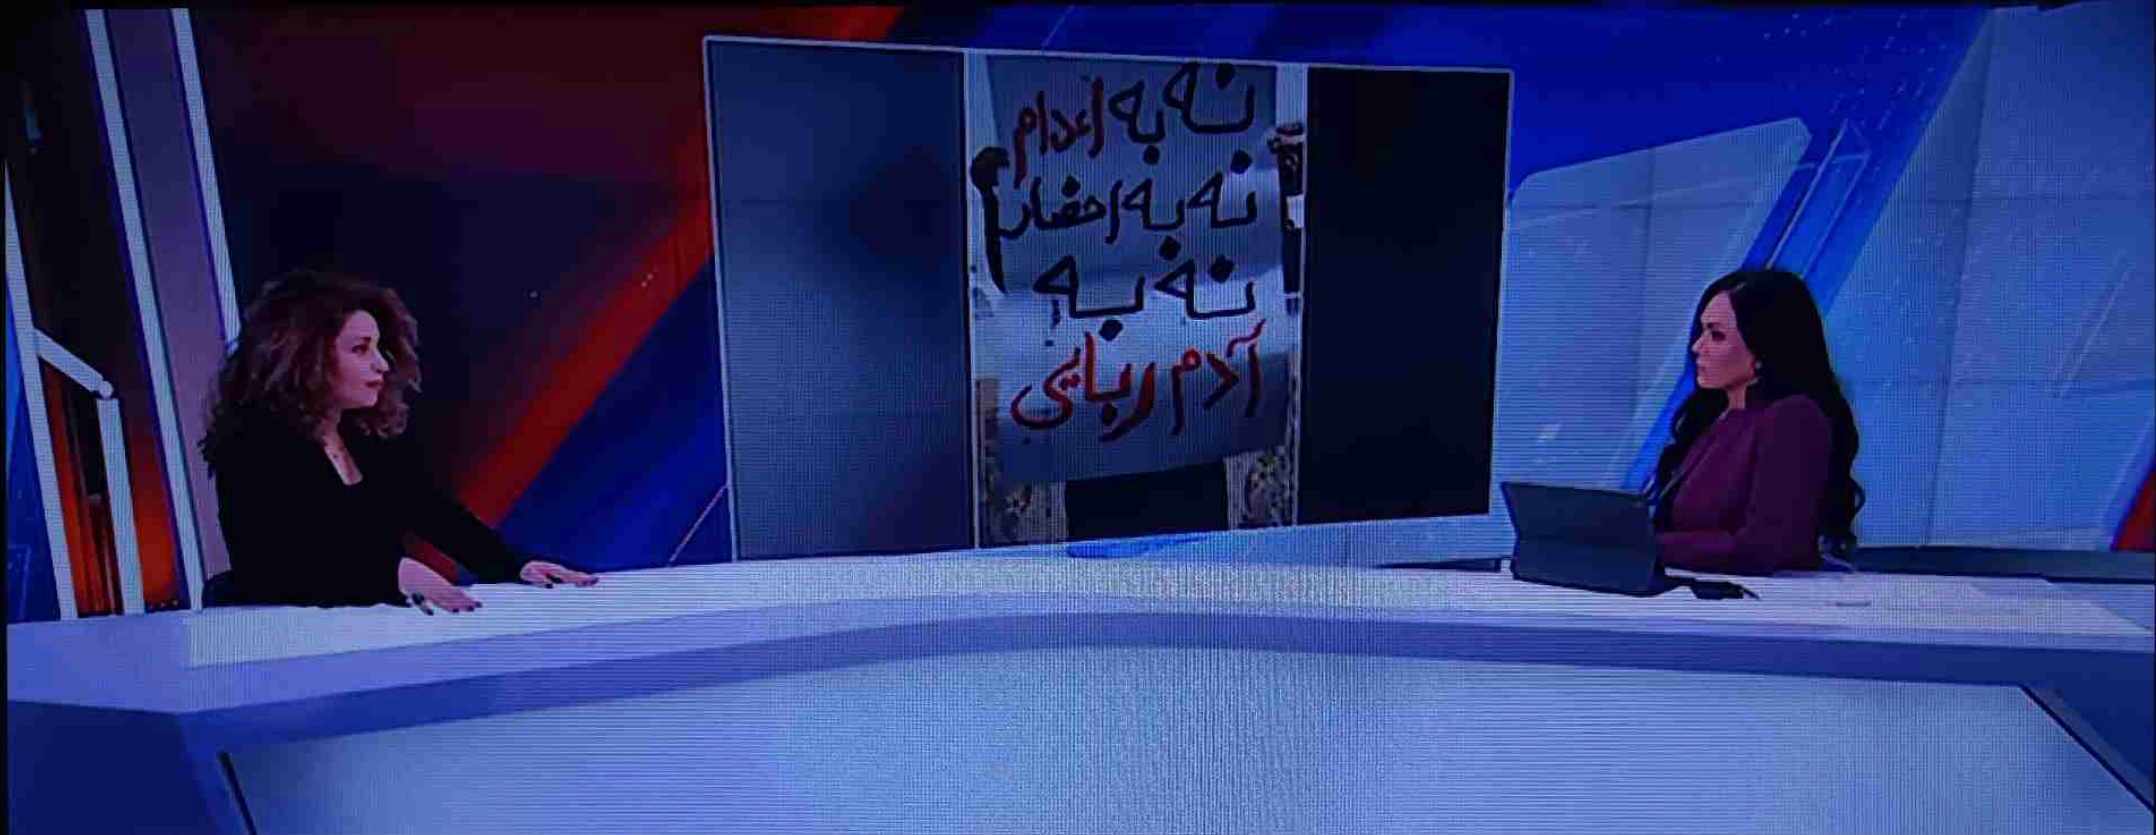 نه به اعدام
نه به احضار
نه به
آدم ربایی